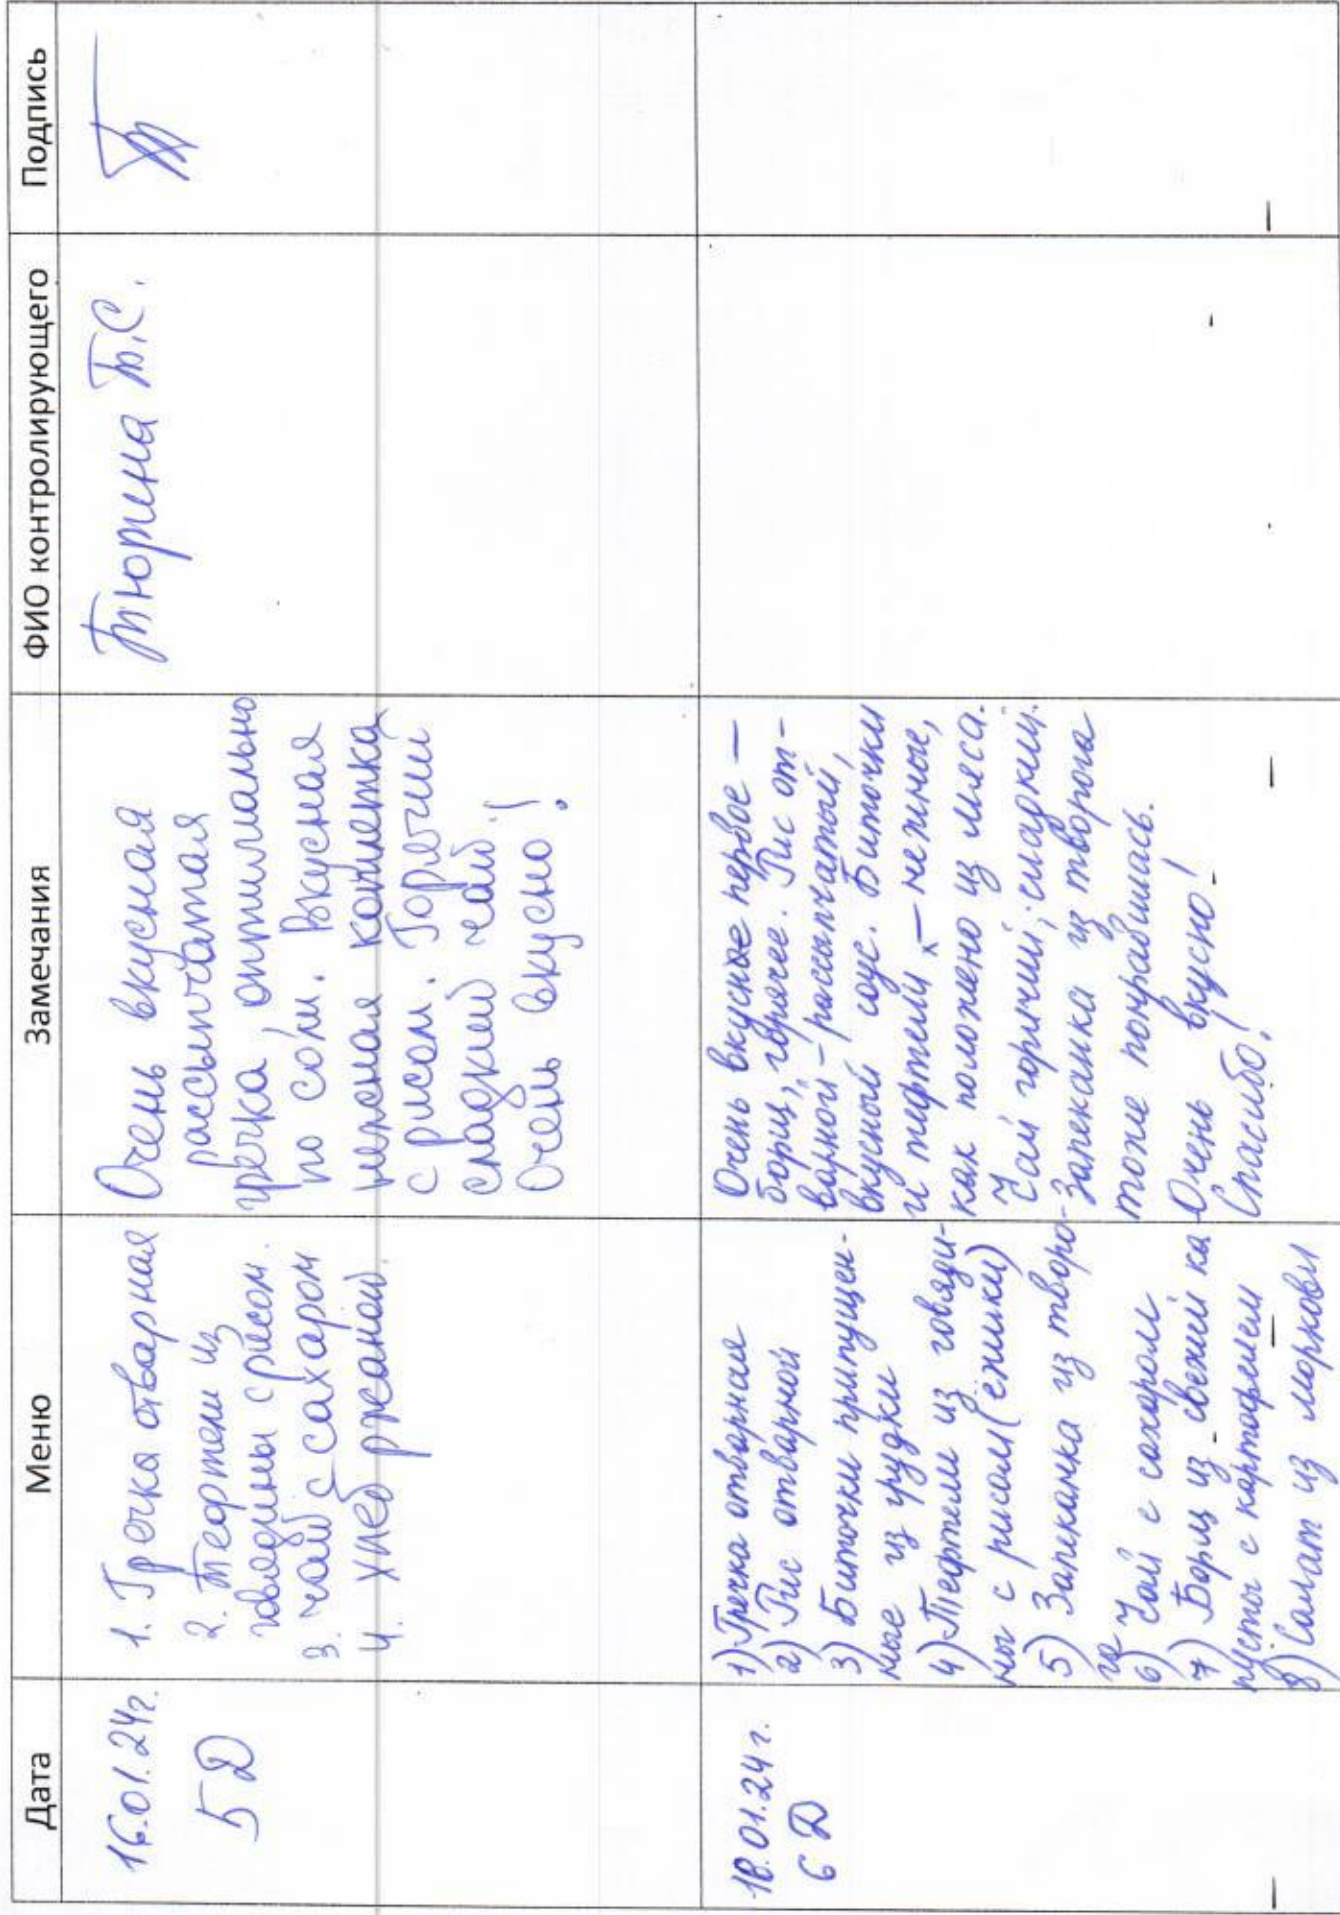 Дата Меню Замечания ФИО контролирующего Подпись
16.01.24г.
5Д
1. Гречка отварная
2. Тефтели из
говядины с рисом.
3. чай с сахаром
4. хлеб ржаной.
Очень вкусная
рассыпчатая
гречка, оптимально
по соли. Вкусная
мясная котлетка
с рисом. Горячий
сладкий чай!
Очень вкусно!
Тюрина Т.С.
18.01.24г.
6Д
1) Гречка отварная
2) Рис отварной
3) Биточки припущен-
ные из грудки
4) Тефтели из говяди-
ны с рисом (ёжики)
5) Запеканка из творо-
га
6) Чай с сахаром
7) Борщ из свежий ка
пусты с картофелем
8) Салат из моркови
Очень вкусное первое –
борщ, горячее. Рис от-
варной – рассыпчатый,
вкусный соус. Биточки
и тефтели – нежные,
как положено из мяса.
Чай горячий, сладкий.
Запеканка из творога
тоже понравилась.
Очень вкусно!
Спасибо!